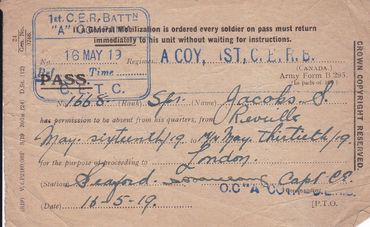 1st. C.E.R. BATTN
"A" COMPANY
If a General Mobilization is ordered every soldier on pass must return
immediately to his unit without waiting for instructions.
16 MAY 19
No. Regiment A COY, 1ST, C.E.R.B.
Time
(CANADA.)
PASS.
Army Form B 295.
C.E.T.C.
(In pads of
No. (Rank) Spr. (Name) Jacobs S.
has permission to be absent from his quarters, from Reveille
May sixteenth/19. May thirtieth/19.
for the purpose of proceeding to London.
(Station) Seaford Capt CE.
O.C "A" COY
(Date) 16-5-19. [P.T.O.
CROWN COPYRIGHT RESERVED.